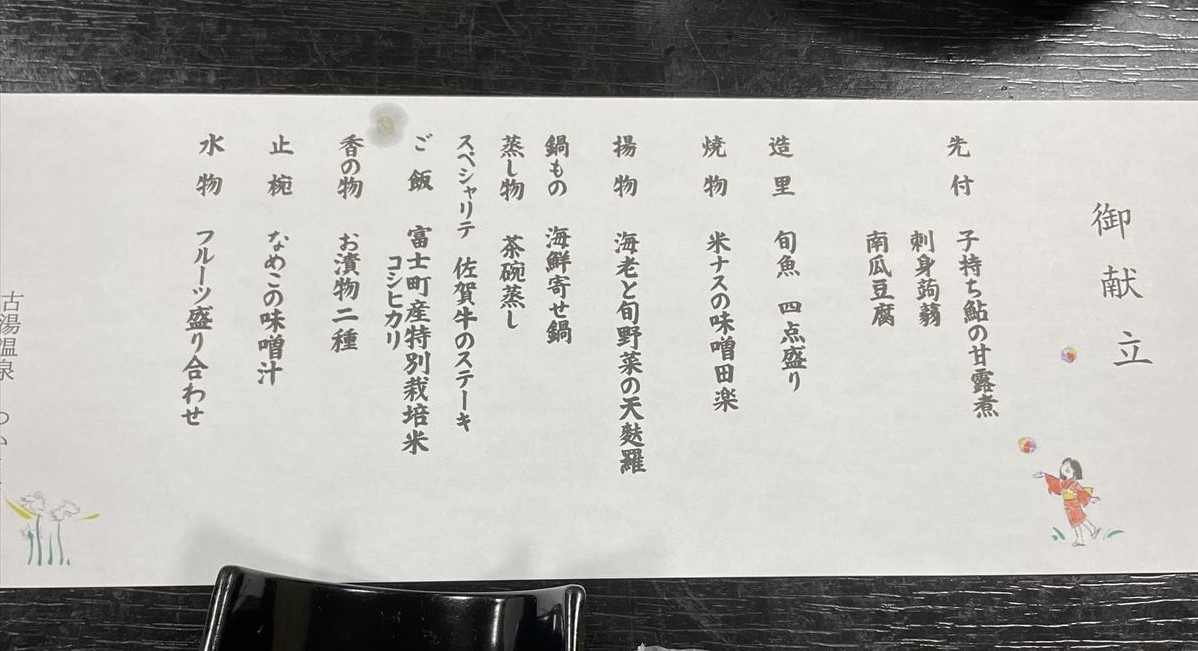 御献立
先付 子持ち鮎の甘露煮
刺身蒟蒻
南瓜豆腐
造里 旬魚 四点盛り
焼物 米ナスの味噌田楽
揚物 海老と旬野菜の天麩羅
鍋もの 海鮮寄せ鍋
蒸し物 茶碗蒸し
スペシャリテ 佐賀牛のステーキ
ご飯 富士町産特別栽培米
コシヒカリ
香の物 お漬物二種
止椀 なめこの味噌汁
水物 フルーツ盛り合わせ
古湯温泉